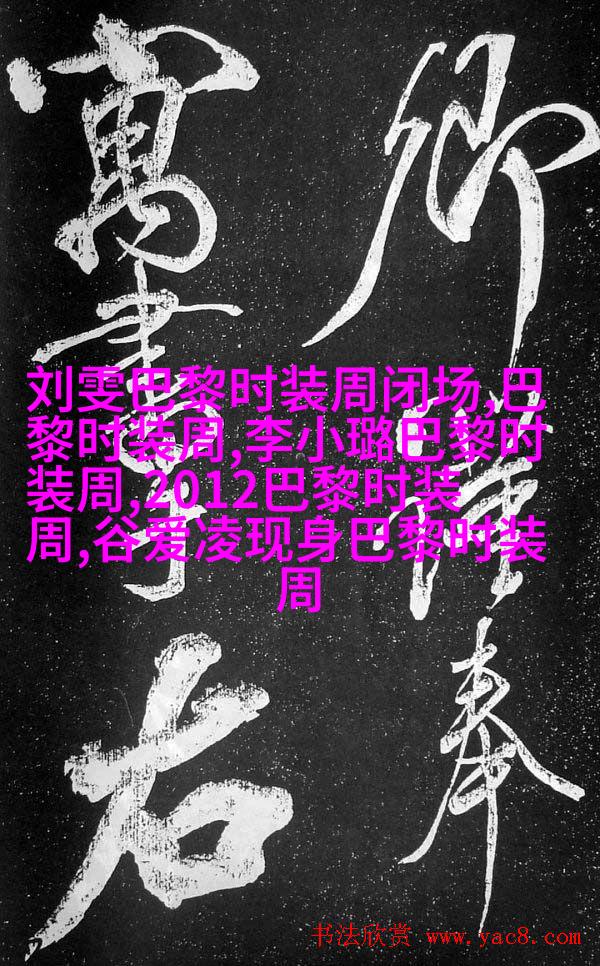 卿謹奉
寓書于右
刘雯巴黎时装周闭场,巴
黎时装周,李小璐巴黎时
装周,2012巴黎时装
周,谷爱凌现身巴黎时装
周
书法欣赏 www.yac8.com